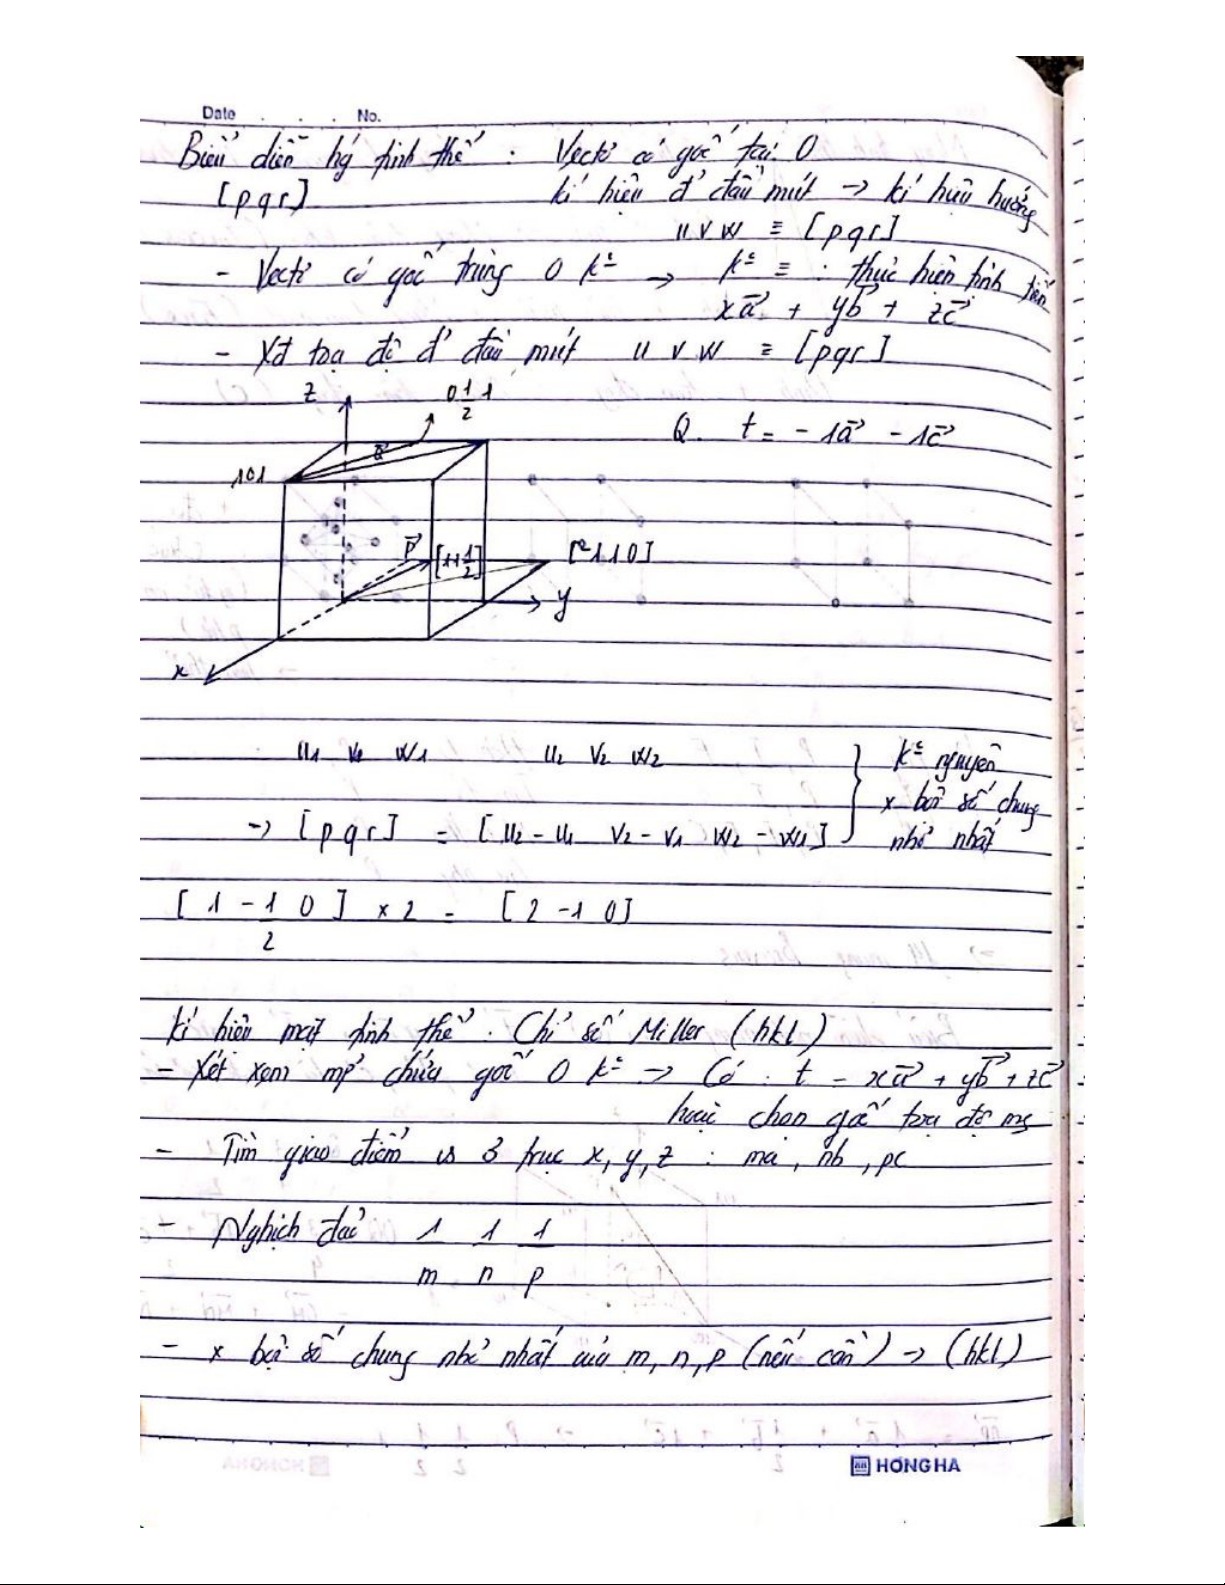 Date . . . No.
Biểu diễn hý tinh thể : Vectơ có gốc tại O
[pqr] kí hiệu đ' đầu mút → kí hiệu hướng
u v w ≡ [pqr]
- Vectơ có gốc trùng O k° → k° ≡ : thực hiện tịnh tiến
xa⃗ + yb⃗ + zc⃗
- Xđ toạ độ đ' đầu mút u v w ≡ [pqr]
z 0 1/2 1
Q. t = - 1a⃗ - 1c⃗
Q⃗
101
P⃗ [1 1 1/2] [-2 1 1 0]
y
x
u1 v1 w1 u2 v2 w2 } k° nguyên
x bội số chung
→ [pqr] = [u2 - u1 v2 - v1 w2 - w1] nhỏ nhất
[1 -1/2 0] x 2 = [2 -1 0]
Kí hiệu mặt tinh thể : Chỉ số Miller (hkl)
- Xét xem mp' chứa gốc O k° → Có : t = xa⃗ + yb⃗ + zc⃗
hoặc chọn gốc toạ độ ms
- Tìm giao điểm vs 3 trục x, y, z : ma, nb, pc
- Nghịch đảo 1/m 1/n 1/p
- x bội số chung nhỏ nhất của m, n, p (nếu cần) → (hkl)
HONG HA